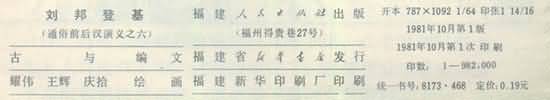 刘邦登基
(通俗前后汉演义之六)
古与 编文
耀伟 王辉 庆拾 绘画
福建人民出版社出版
(福州得贵巷27号)
福建省新华书店发行
福建新华印刷厂印刷
开本 787×1092 1/64 印张 1 14/16
1981年10月第1版
1981年10月第1次印刷
印数：1—982,000
统一书号：8173·468 定价：0.19元